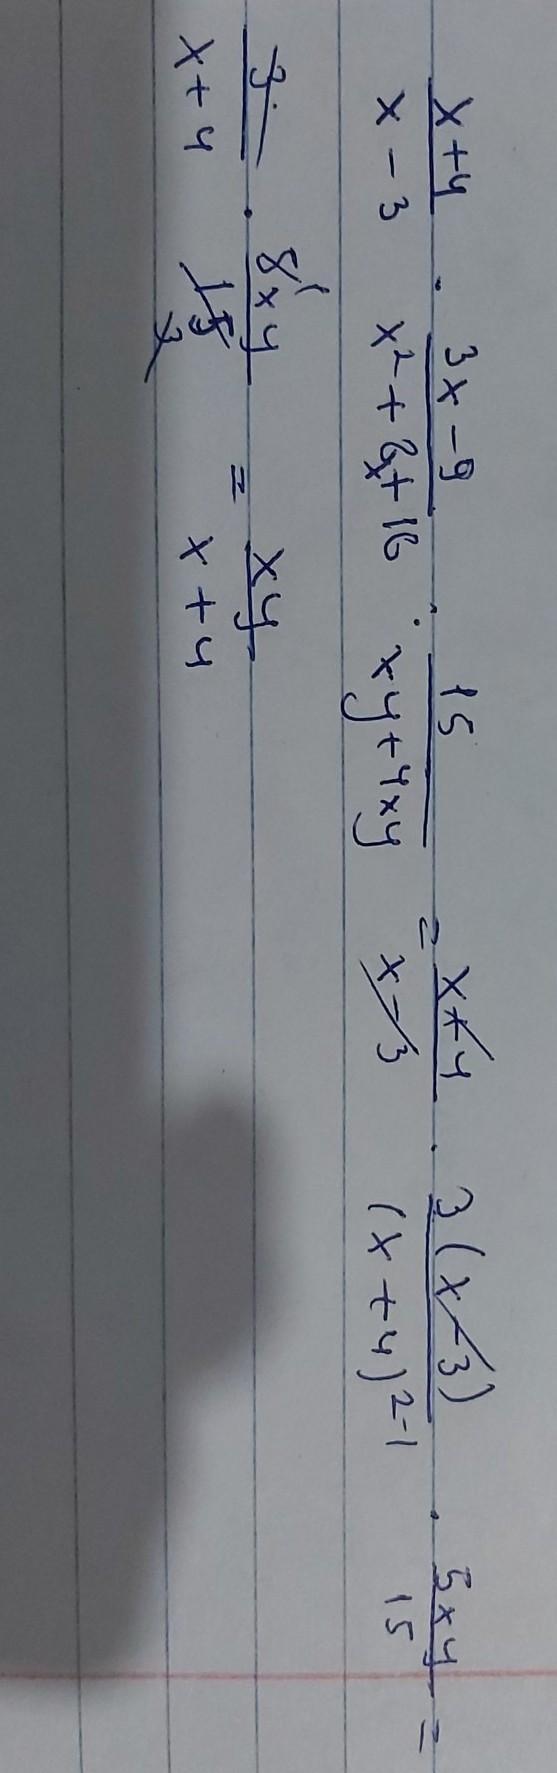 (x+4)/(x-3) · (3x-9)/(x²+8x+16) : 15/(xy+4xy) = (x+4)/(x-3) · 3(x-3)/(x+4)²⁻¹ · 5xy/15 =
3/(x+4) · 5¹xy/15 3 = xy/(x+4)